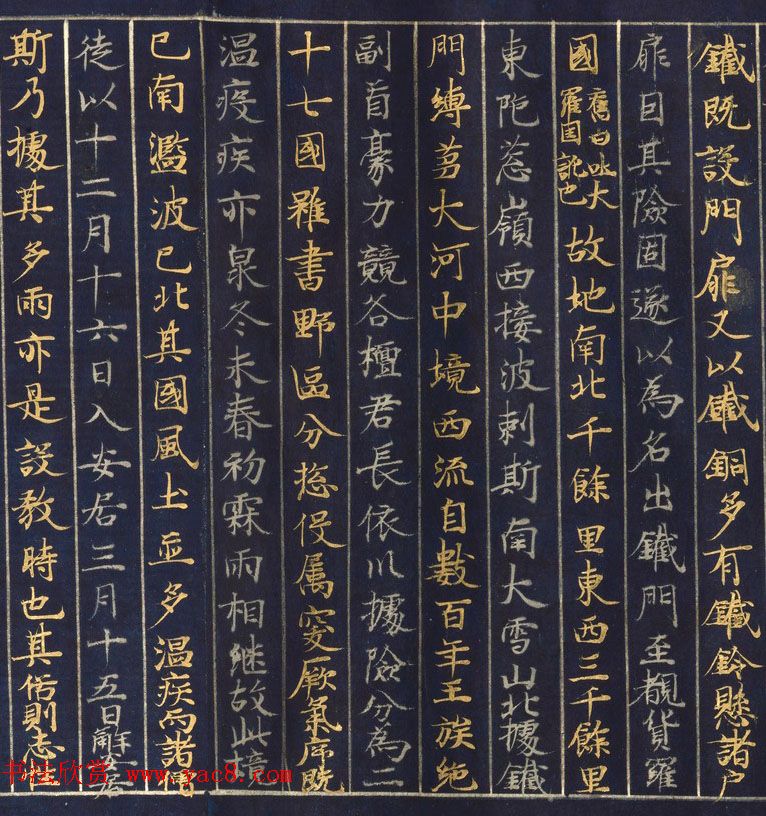 鐵既設門扉又以鐵銅多有鐵鈴懸諸户
扉因其險固遂以為名出鐵門至覩貨羅
國舊曰吐大羅国訛也故地南北千餘里東西三千餘里
東阨葱嶺西接波剌斯南大雪山北據鐵
門縛芻大河中境西流自數百年王族絶
副首豪力競各檀君長依川據險分為二
十七國雖書野區分惣侵属突厥氣序既
温疫疾亦衆冬末春初霖雨相継故此境
已南濫波已北其國風土並多温疾而諸僧
徒以十二月十六日入安居三月十五日解安居
斯乃據其多雨亦是設教時也其俗則志性
书法欣赏 www.yac8.com